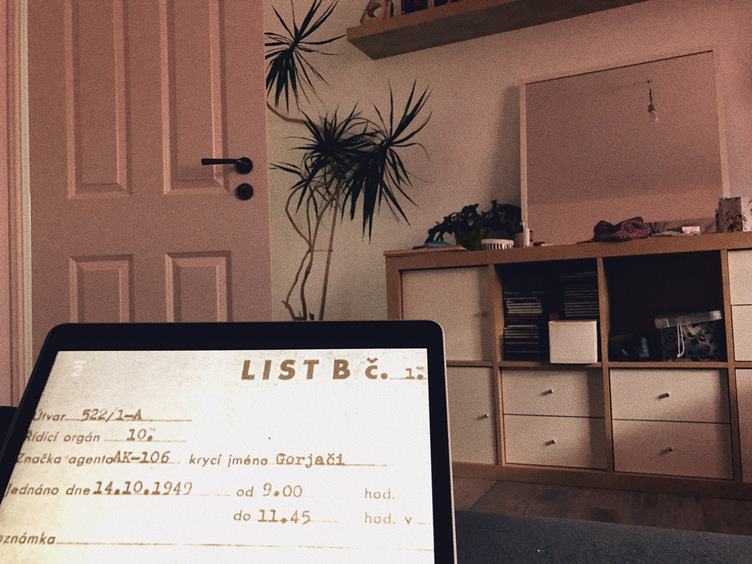 LIST B č. 1.
Útvar 522/1-A
Řídící orgán 10.
Značka agenta AK-106 krycí jméno Gorjači
jednáno dne 14.10.1949 od 9.00 hod.
do 11.45 hod. v
oznámka